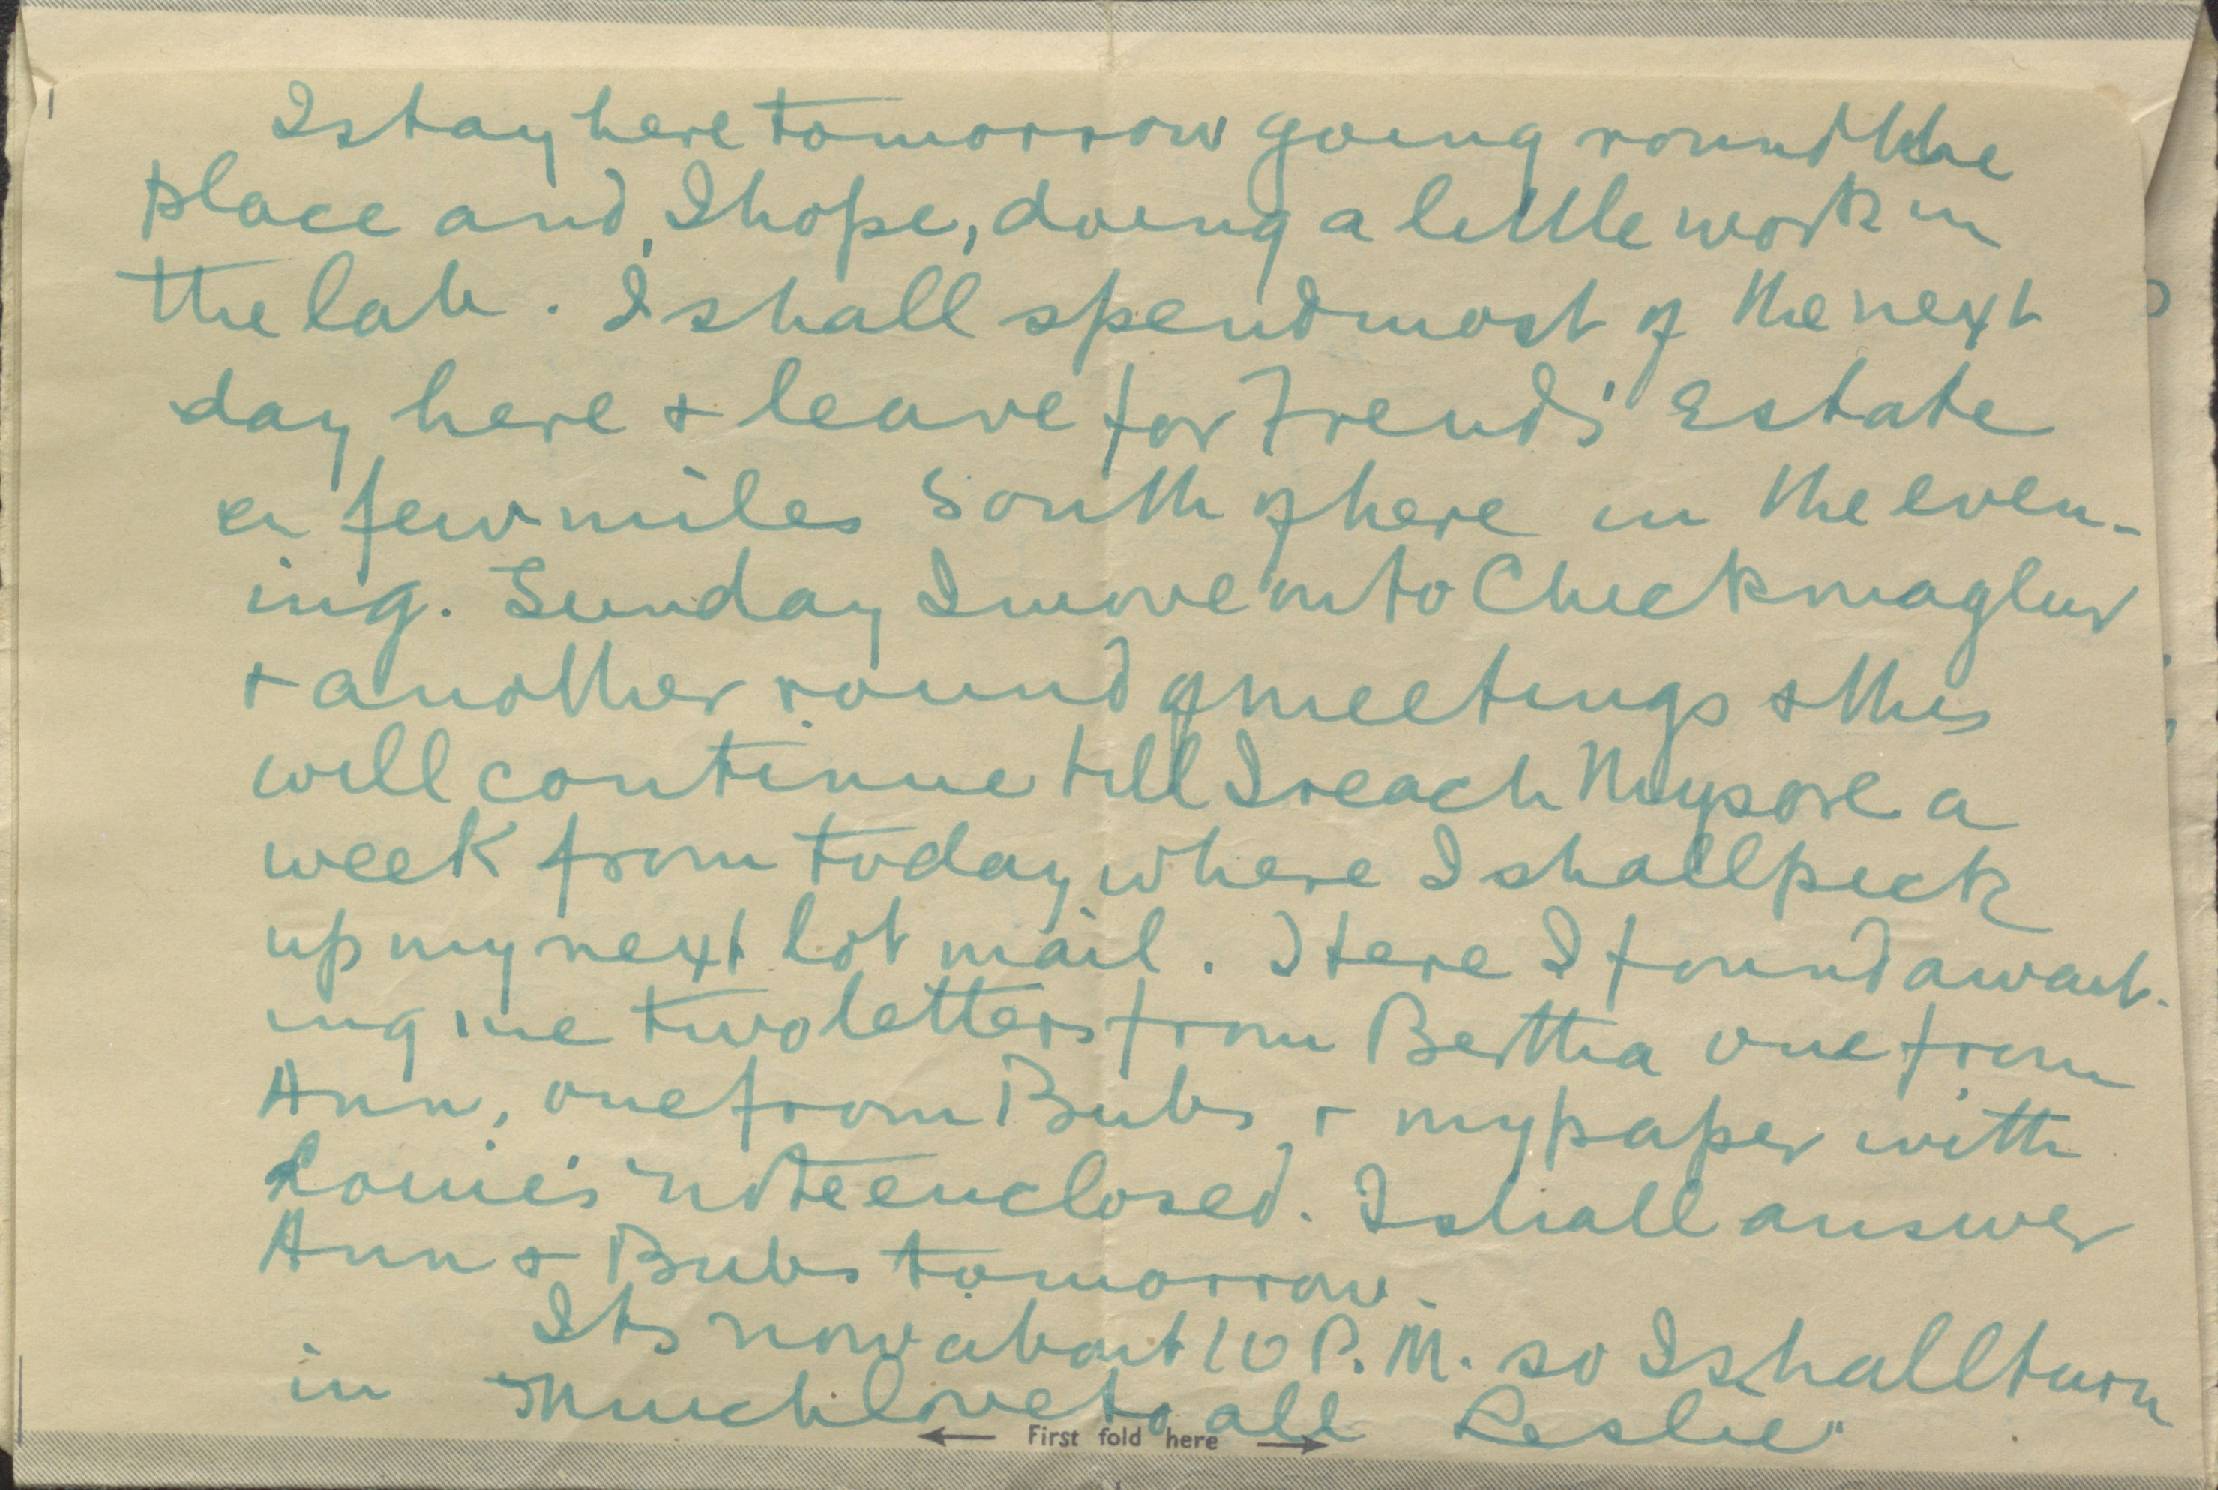 I stay here tomorrow going round the
place and, I hope, doing a little work in
the lab. I shall spend most of the next
day here + leave for Frend's Estate
a few miles South of here in the even-
ing. Sunday I move on to Chickmaglur
+ another round of meetings + this
will continue till I reach Mysore a
week from today where I shall pick
up my next lot mail. Here I found await-
ing me two letters from Bertha one from
Ann, one from Bubs + my paper with
Louie's note enclosed. I shall answer
Ann + Bubs tomorrow.
Its now about 10 P.M. so I shall turn
in Much love to all Leslie"
← First fold here →